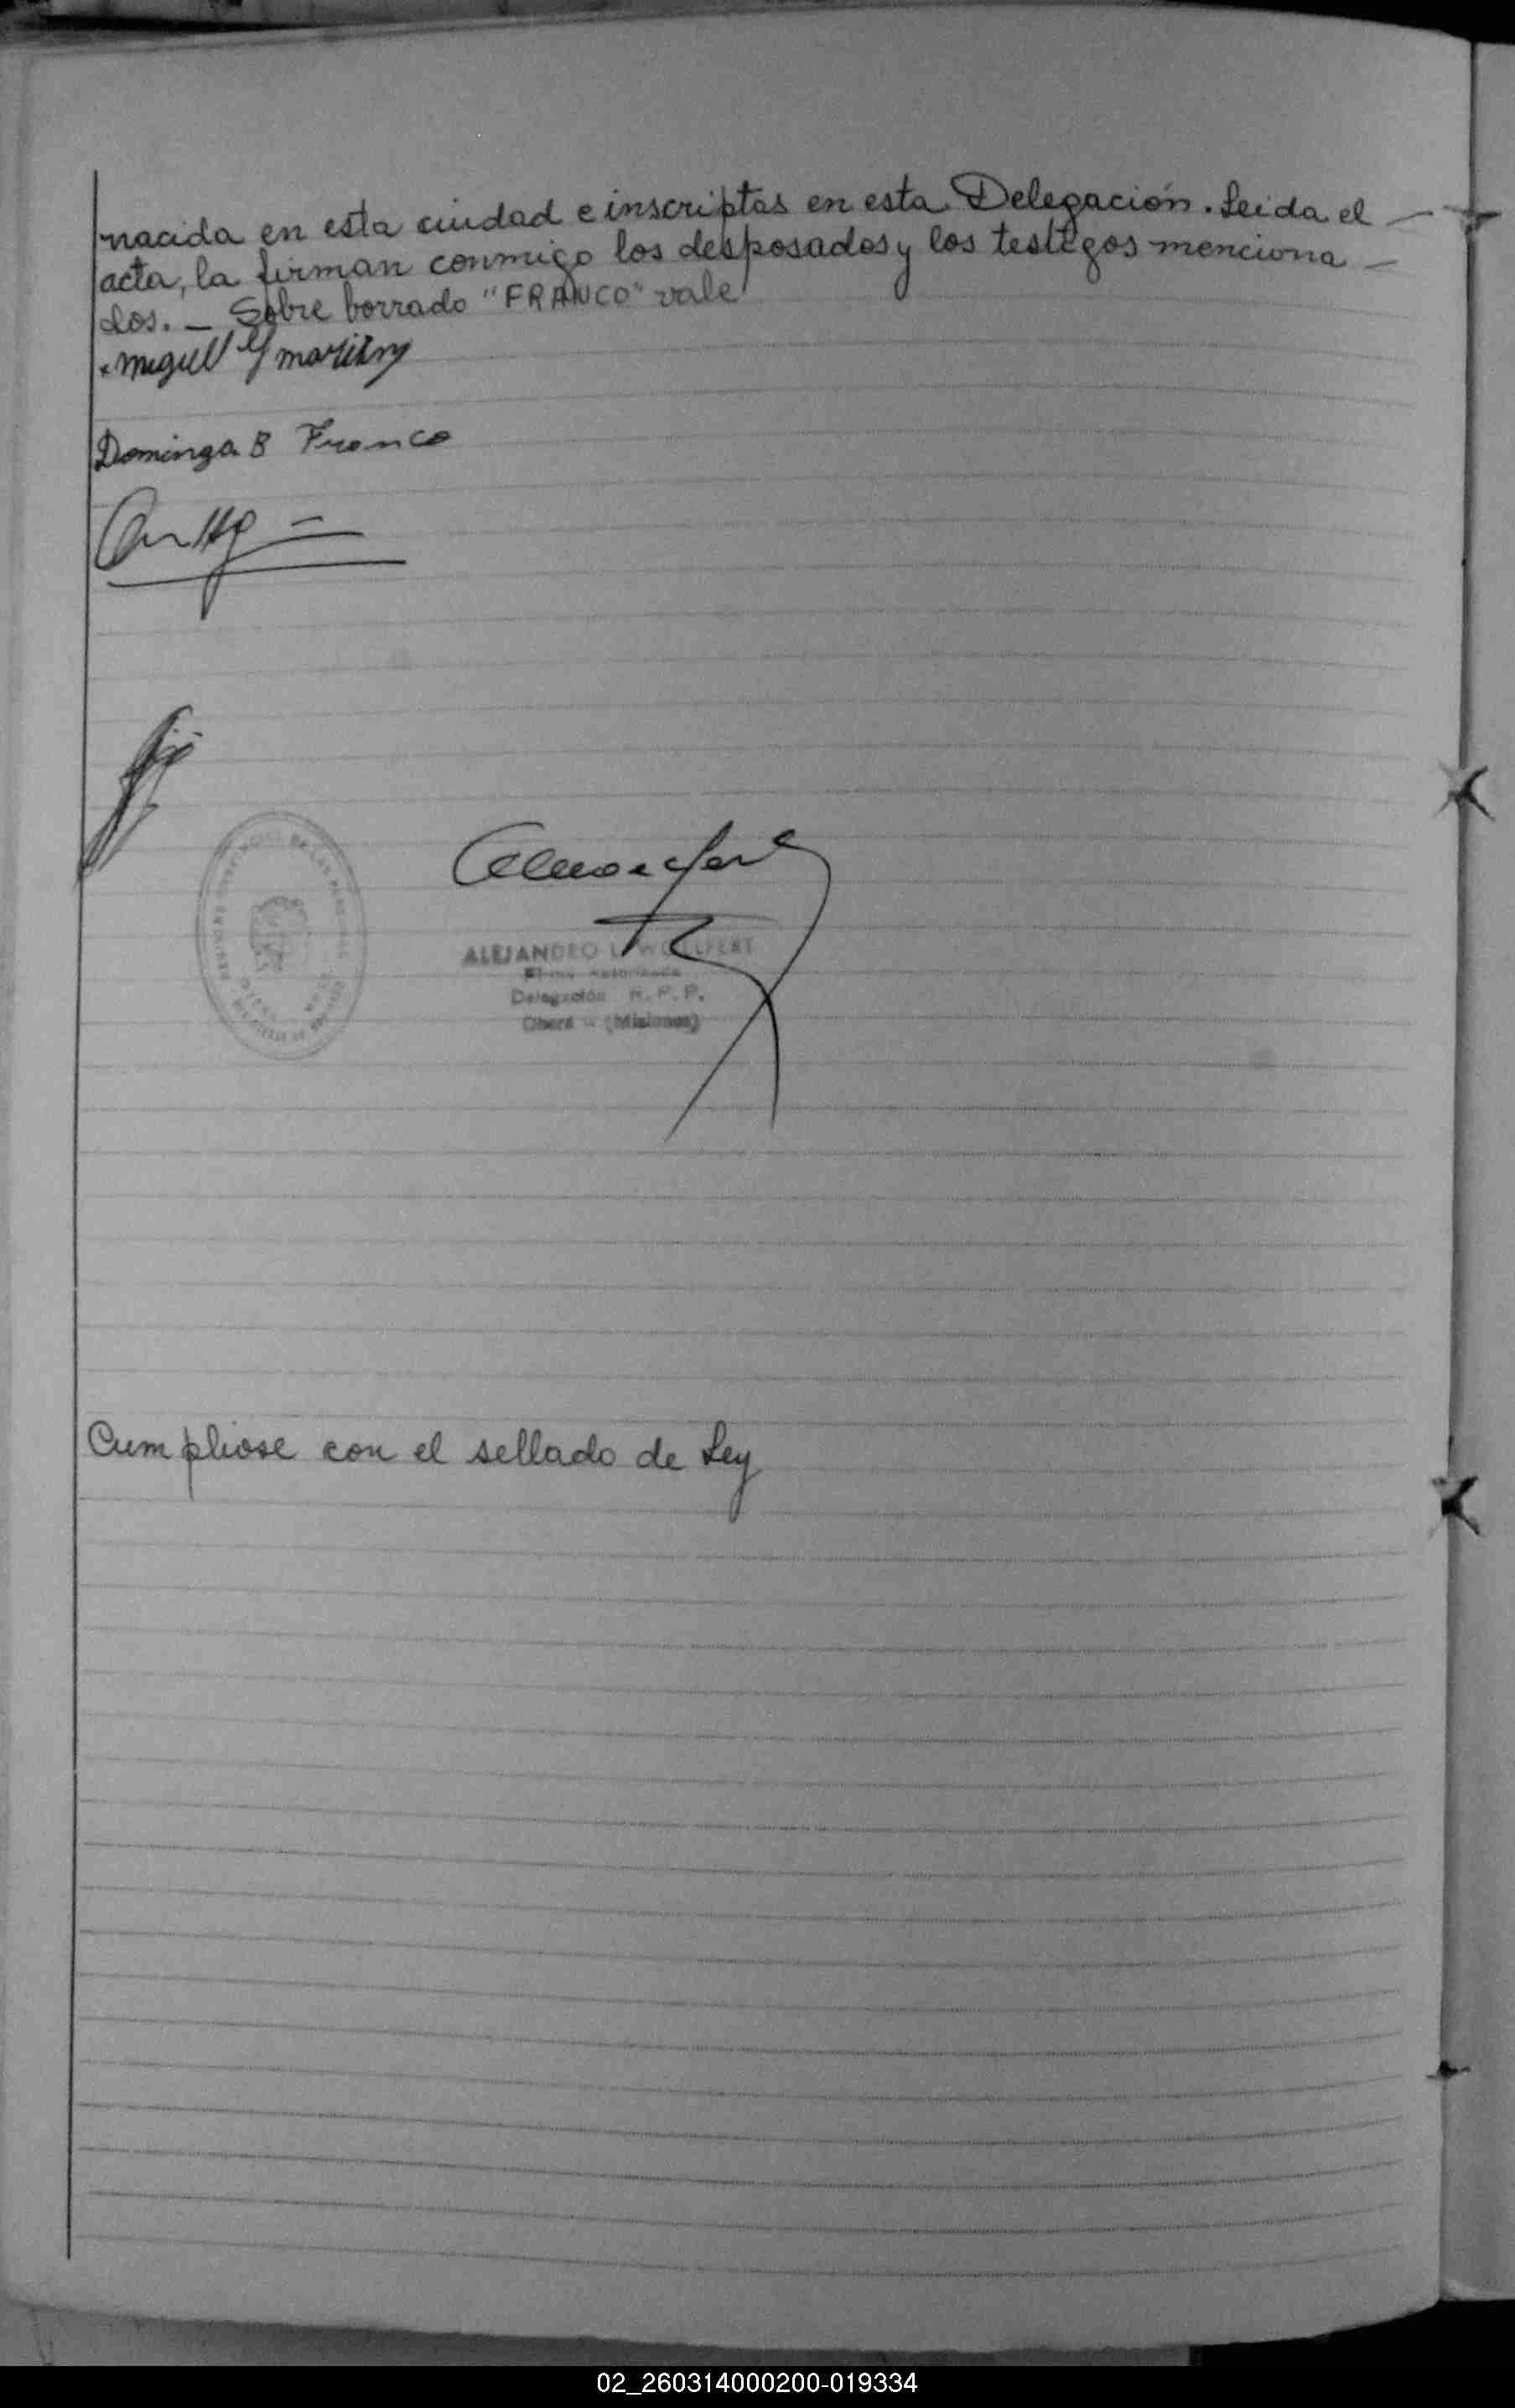 nacida en esta ciudad e inscriptas en esta Delegación. Leida el —
acta, la firman conmigo los desposados y los testigos menciona —
dos. — Sobre borrado "FRANCO" vale
Miguel
Dominga B Franco
ALEJANDRO L. WOLLFERT
Firma Autorizada
Delegación R. P. P.
Oberá - (Misiones)
Cumpliose con el sellado de Ley
02_260314000200-019334